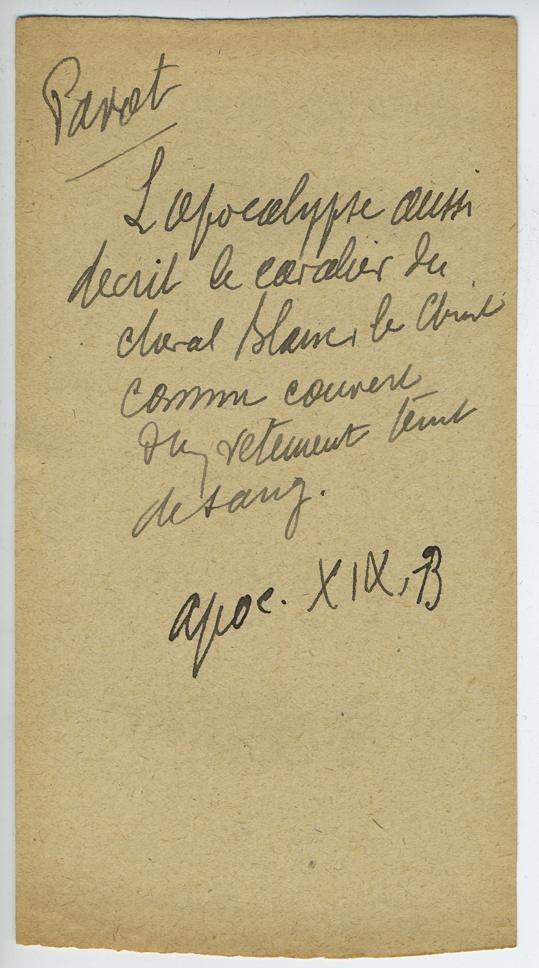 Pavot
L'apocalypse aussi
decrit le cavalier du
cheval blanc, le Christ
comme couvert
d'un vetement teint
de sang.
apoc. XIX, 13